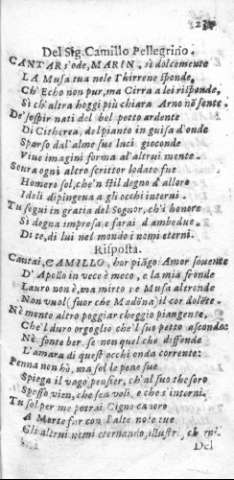 Del Sig. Camillo Pellegrino.
CANTAR s'ode, MARIN, sì dolcemente
LA Musa tua nele Thirrene sponde,
Ch'Echo non pur, ma Cirra a lei risponde,
Sì ch'altra hoggi più chiara Arno nõ sente.
De' sospir nati del bel petto ardente
Di Citherea, del pianto in guisa d'onde
Sparso dal'alme sue luci gioconde
Viue imagini forma al'altrui mente.
Soura ogni altro scrittor lodato fue
Homero sol, che'n stil degno d'alloro
I dei dipingeua a gli occhi interni.
Tu segui in gratia del Signor, ch'i honore
Sì degna impresa e farai d'ambedue
Di te, di lui nel mondo i nomi eterni.
Risposta.
Cantai, CAMILLO, hor piãgo: Amor souente
D'Apollo in vece è meco, e la mia fronde
Lauro non è, ma mirto: e Musa altronde
Non vuol (fuor che Madõna) il cor dolẽte.
Nè monto altro poggiar cheggio piangente,
Che'l duro orgoglio che'l suo petto asconde:
Nè fonte ber se non quel che diffonde
L'amara di quest' occhi onda corrente:
Penna non hò, ma sol le pene sue
Spiega il vago pensier, ch'al suo thesoro
Spesso vien, che sen voli, e che s'interni.
Tu sol per me potrai Cigno canoro
A Morte far con l'alte note tue
Gli altrui nomi eternando, illustri,
Del